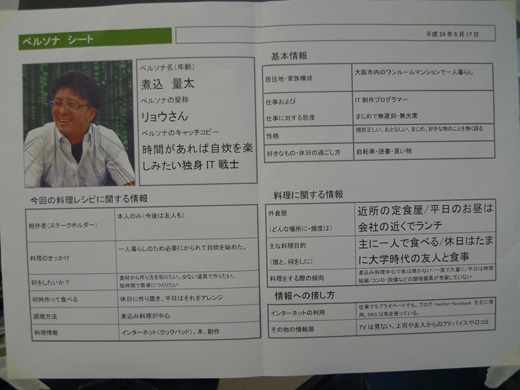 ペルソナ シート
平成 24 年 6 月 17 日
ペルソナ名（年齢）
煮込 量太
ペルソナの愛称
リョウさん
ペルソナのキャッチコピー
時間があれば自炊を楽
しみたい独身 IT 戦士
基本情報
居住地・家族構成
大阪市内のワンルームマンションで一人暮らし
仕事および
仕事に対する態度
IT 制作プログラマー
まじめで無遅刻・無欠席
性格
規則正しい、おとなしい、まじめ、好きな物のことを熱く語る
好きなもの・休日の過ごし方
自転車・読書・買い物
今回の料理レシピに関する情報
相伴者（ステークホルダー）
本人のみ（今後は友人も）
料理のきっかけ
一人暮らしのため必要にかられて自炊を始めた。
何をしたいか？
食材から作り方を知りたい。少ない道具で作りたい。
短時間で簡単につくりたい
何時作って食べる
休日に作り置き、平日はそれをアレンジ
調理方法
煮込み料理が中心
料理情報
インターネット（クックパッド）、本、創作
料理に関する情報
外食歴
（どんな場所に・頻度は）
近所の定食屋/平日のお昼は
会社の近くでランチ
主な料理目的
（誰と、何をしに）
主に一人で食べる/休日はたま
に大学時代の友人と食事
料理をする際の傾向
煮込み料理中心で魚は焼かない/一度で大量に/平日は時間
短縮/コンロ・設備などの調理器具が充実していない
情報への接し方
インターネットの利用
仕事でもプライベートでも。ブログ・twitter・facebook を主に使
用。SNS は気を使っている。
その他の情報源
TV は見ない。上司や友人からのアドバイスや口コミ